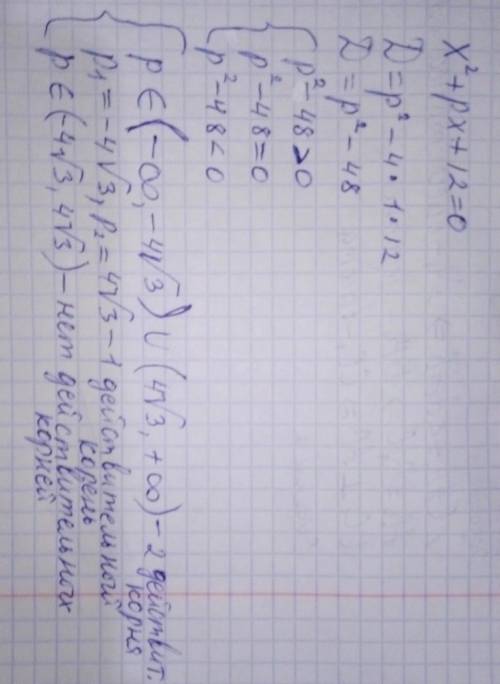 x² + px + 12 = 0
D = p² - 4 · 1 · 12
D = p² - 48
p² - 48 > 0
p² - 48 = 0
p² - 48 < 0
p ∈ (-∞, -4√3) ∪ (4√3, +∞) - 2 действит. корня
p₁ = -4√3, p₂ = 4√3 - 1 действительный корень
p ∈ (-4√3, 4√3) - нет действительных корней